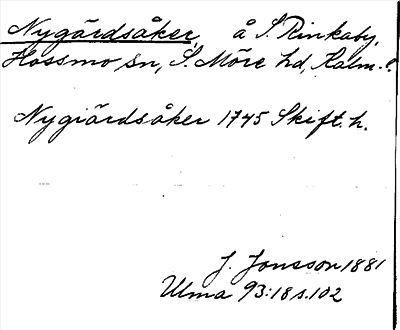 Nygärdsåker, å S. Rinkaby,
Hossmo sn, S. Möre hd, Kalm. l.
Nygiärdsåker 1745 Skift. h.
J. Jonsson 1881
Ulma 93:18 s. 102